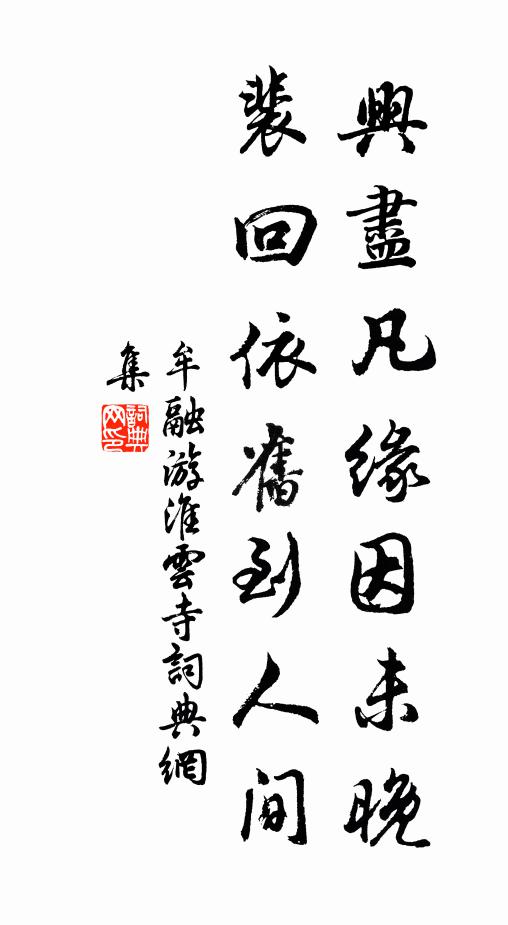 興盡凡緣因未晚
裴回依舊到人間
牟融游淮雲寺詞典網
集
詞典网印